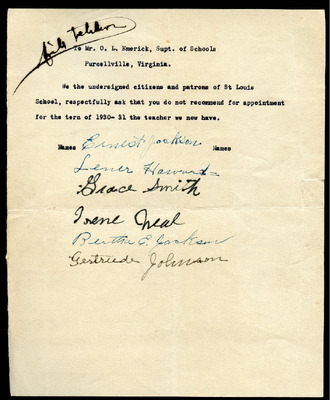 file petition
To Mr. O. L. Emerick, Supt. of Schools
Purcellville, Virginia.
We the undersigned citizens and patrons of St Louis
School, respectfully ask that you do not recommend for appointment
for the term of 1930- 31 the teacher we now have.
Names Ernest Jackson Names
Lener Howard
Grace Smith
Irene Neal
Bertha E. Jackson
Gertrude Johnson